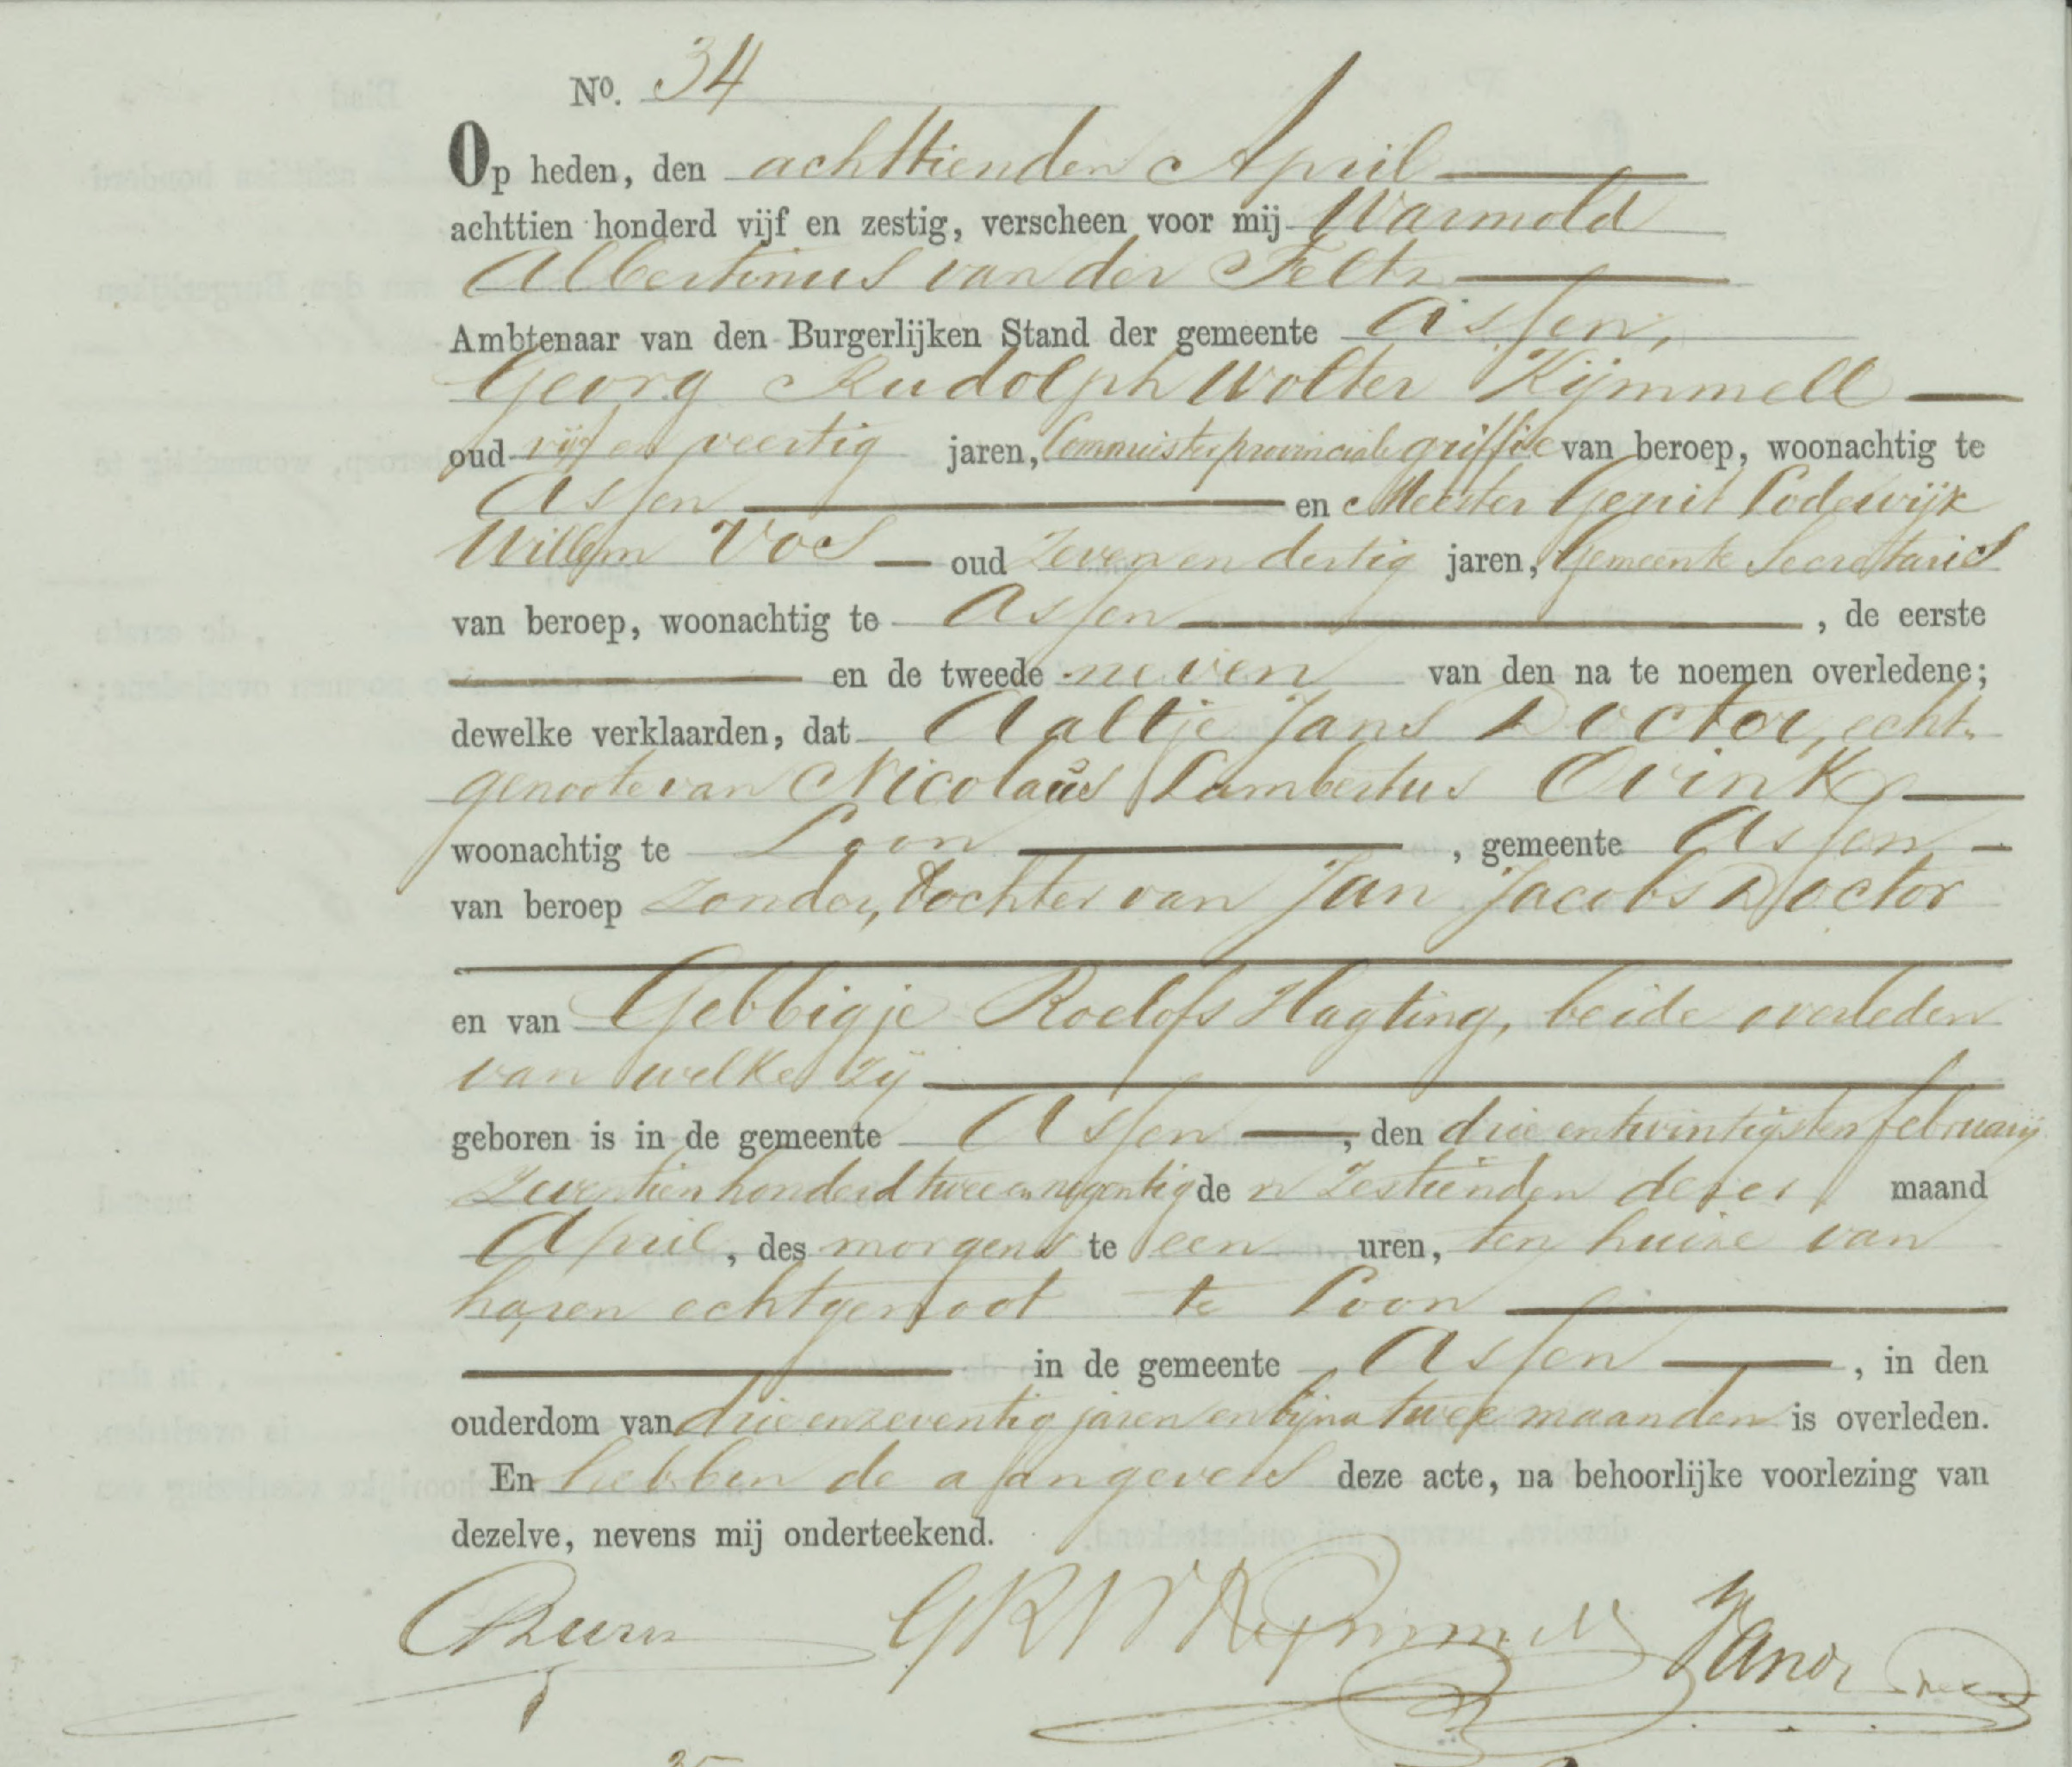 No. 34
Op heden, den achttienden April
achttien honderd vijf en zestig, verscheen voor mij Warmold
Albertinus van der Feltz
Ambtenaar van den Burgerlijken Stand der gemeente Assen,
Georg Rudolph Wolter Kijmmell
oud vijf en veertig jaren, Commies ter provinciale griffie van beroep, woonachtig te
Assen en Meester Gerrit Lodewijk
Willem Vos oud zeven en dertig jaren, Gemeente Secretaris
van beroep, woonachtig te Assen, de eerste
en de tweede neven van den na te noemen overledene;
dewelke verklaarden, dat Aaltje Jans Doctor, echt-
genoote van Nicolaüs Lambertus Ovink
woonachtig te Loon, gemeente Assen
van beroep zonder, dochter van Jan Jacobs Doctor
en van Gebbigje Roelofs Hagting, beide overleden
van welke zij
geboren is in de gemeente Assen, den drie en twintigsten februarij
zeventien honderd twee en negentig den zestienden dezer maand
April, des morgens te een uren, ten huize van
haren echtgenoot te Loon
in de gemeente Assen, in den
ouderdom van drie en zeventig jaren en bijna twee maanden is overleden.
En hebben de aangevers deze acte, na behoorlijke voorlezing van
dezelve, nevens mij onderteekend.
GRW Kymmell